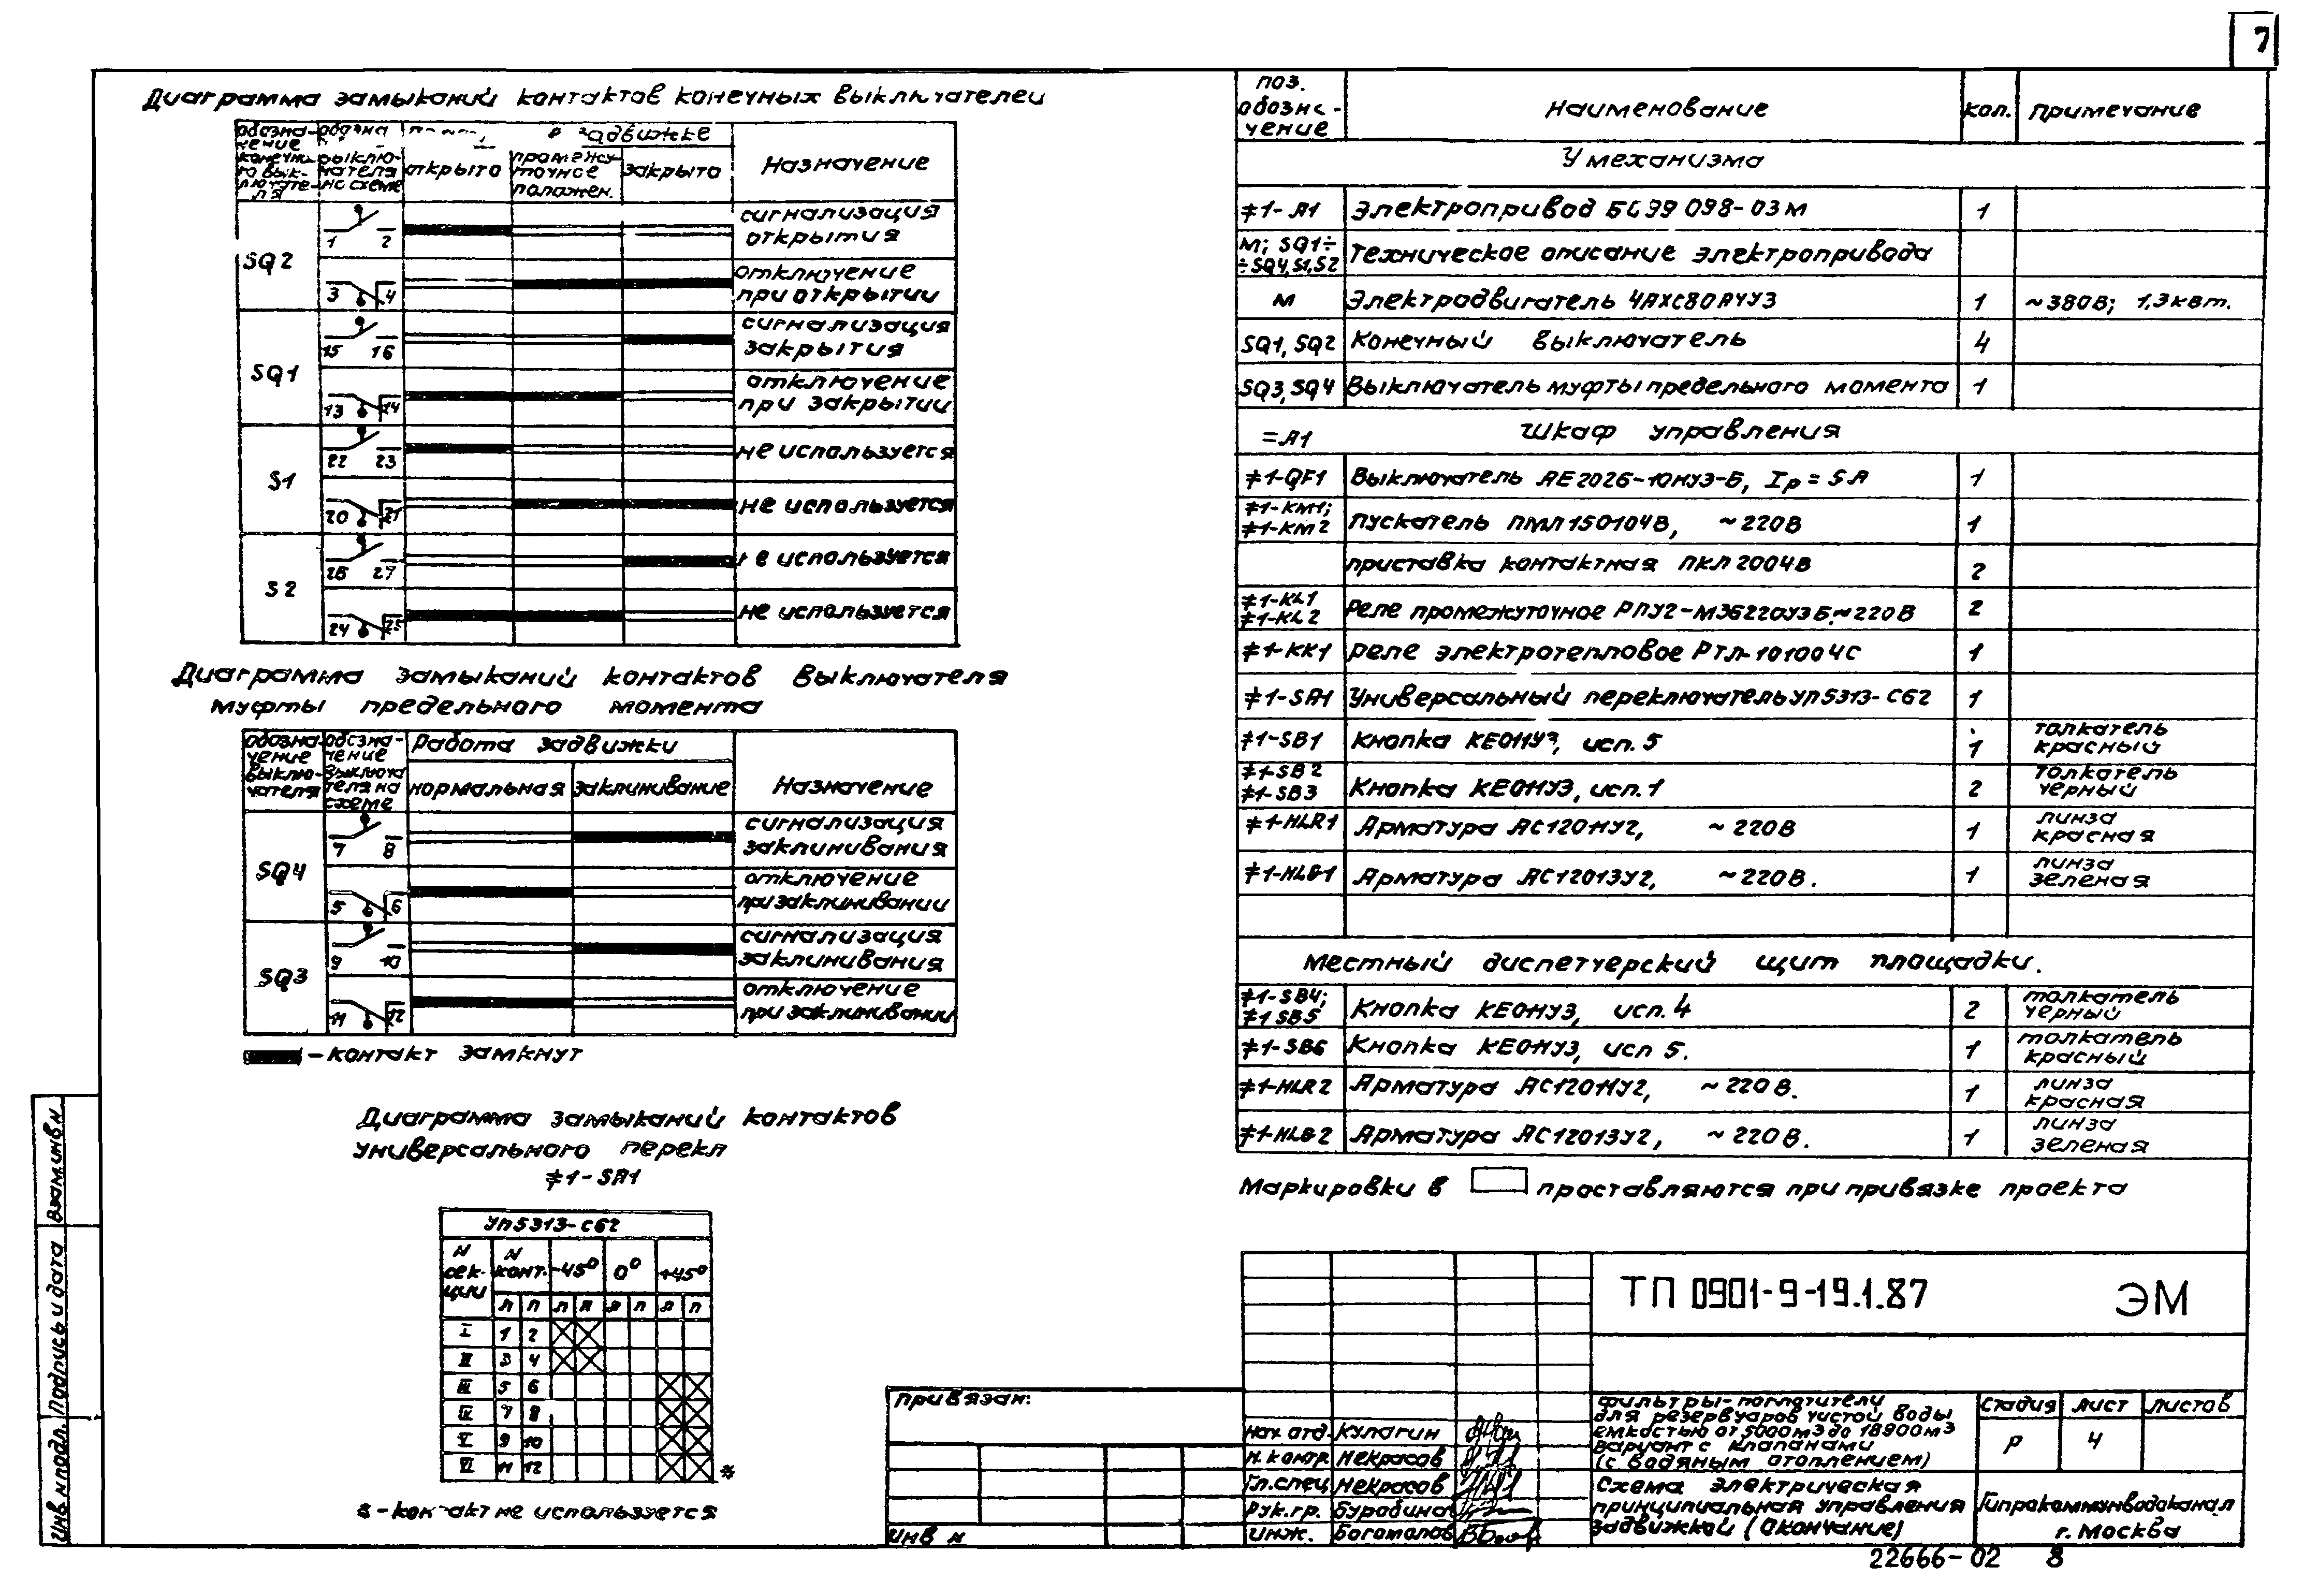 7
Диаграмма замыканий контактов конечных выключателей
обозначение конечного выключателя
выключателя на схеме
задвижке
открыто
промежуточное положен.
закрыто
Назначение
SQ2
1 2
сигнализация открытия
3 4
отключение при открытии
SQ1
15 16
сигнализация закрытия
13 14
отключение при закрытии
S1
22 23
не используется
20 21
не используется
S2
26 27
не используется
24 25
не используется
Диаграмма замыканий контактов выключателя
муфты предельного момента
обозначение выключателя
обозначение выключателя на схеме
Работа задвижки
нормальная
заклинивание
Назначение
SQ4
7 8
сигнализация заклинивания
5 6
отключение при заклинивании
SQ3
9 10
сигнализация заклинивания
11 12
отключение при заклинивании
– контакт замкнут
Диаграмма замыканий контактов
универсального перекл
≠1-SA1
УП5313-С62
N секции
N конт.
-45° 0° +45°
Л П Л П Л П Л П
I 1 2
II 3 4
III 5 6
IV 7 8
V 9 10
VI 11 12 *
- контакт не используется
поз. обозначение Наименование кол. Примечание
У механизма
≠1-А1 Электропривод Б099 098-03М 1
М; SQ1÷ ÷SQ4,S1,S2 Техническое описание электропривода
М Электродвигатель 4АХС80А4У3 1 ~380В; 1,3 квт.
SQ1, SQ2 Конечный выключатель 4
SQ3, SQ4 Выключатель муфты предельного момента 1
=А1 Шкаф управления
≠1-QF1 Выключатель АЕ2026-10НУЗ-Б, Iр = 5А 1
≠1-КМ1; ≠1-КМ2 Пускатель ПМЛ150104В, ~220В 1
приставка контактная ПКЛ2004В 2
≠1-KL1 ≠1-KL2 Реле промежуточное РПУ2-М36220У3Б,~220В 2
≠1-КК1 реле электротепловое РТЛ-101004С 1
≠1-SA1 Универсальный переключатель УП5313-С62 1
≠1-SB1 Кнопка КЕ011У3, исп. 5 1 толкатель красный
≠1-SB2 ≠1-SB3 Кнопка КЕ011У3, исп. 1 2 толкатель черный
≠1-HLR1 Арматура АС12011У2, ~220В 1 линза красная
≠1-HLG1 Арматура АС12013У2, ~220В. 1 линза зеленая
Местный диспетчерский щит площадки.
≠1-SB4; ≠1SB5 Кнопка КЕ011У3, исп. 4 2 толкатель черный
≠1-SB6 Кнопка КЕ011У3, исп 5. 1 толкатель красный
≠1-HLR2 Арматура АС12011У2, ~220В. 1 линза красная
≠1-HLG2 Арматура АС12013У2, ~220В. 1 линза зеленая
Маркировки в проставляются при привязке проекта
ТП 0901-9-19.1.87 ЭМ
Фильтры-поглотители
для резервуаров чистой воды
емкостью от 5000м3 до 18900м3
вариант с клапанами
(с водяным отоплением)
стадия лист листов
Р 4
Схема электрическая
принципиальная управления
задвижкой (окончание)
Гипрокоммунводоканал
г. Москва
нач. отд. Кулагин
н. контр. Некрасов
Гл.спец Некрасов
Рук.гр. Буробина
инж. Богомолов
привязан:
инв н
Взам.инв н
Подпись и дата
Инв н подл.
22666-02 8